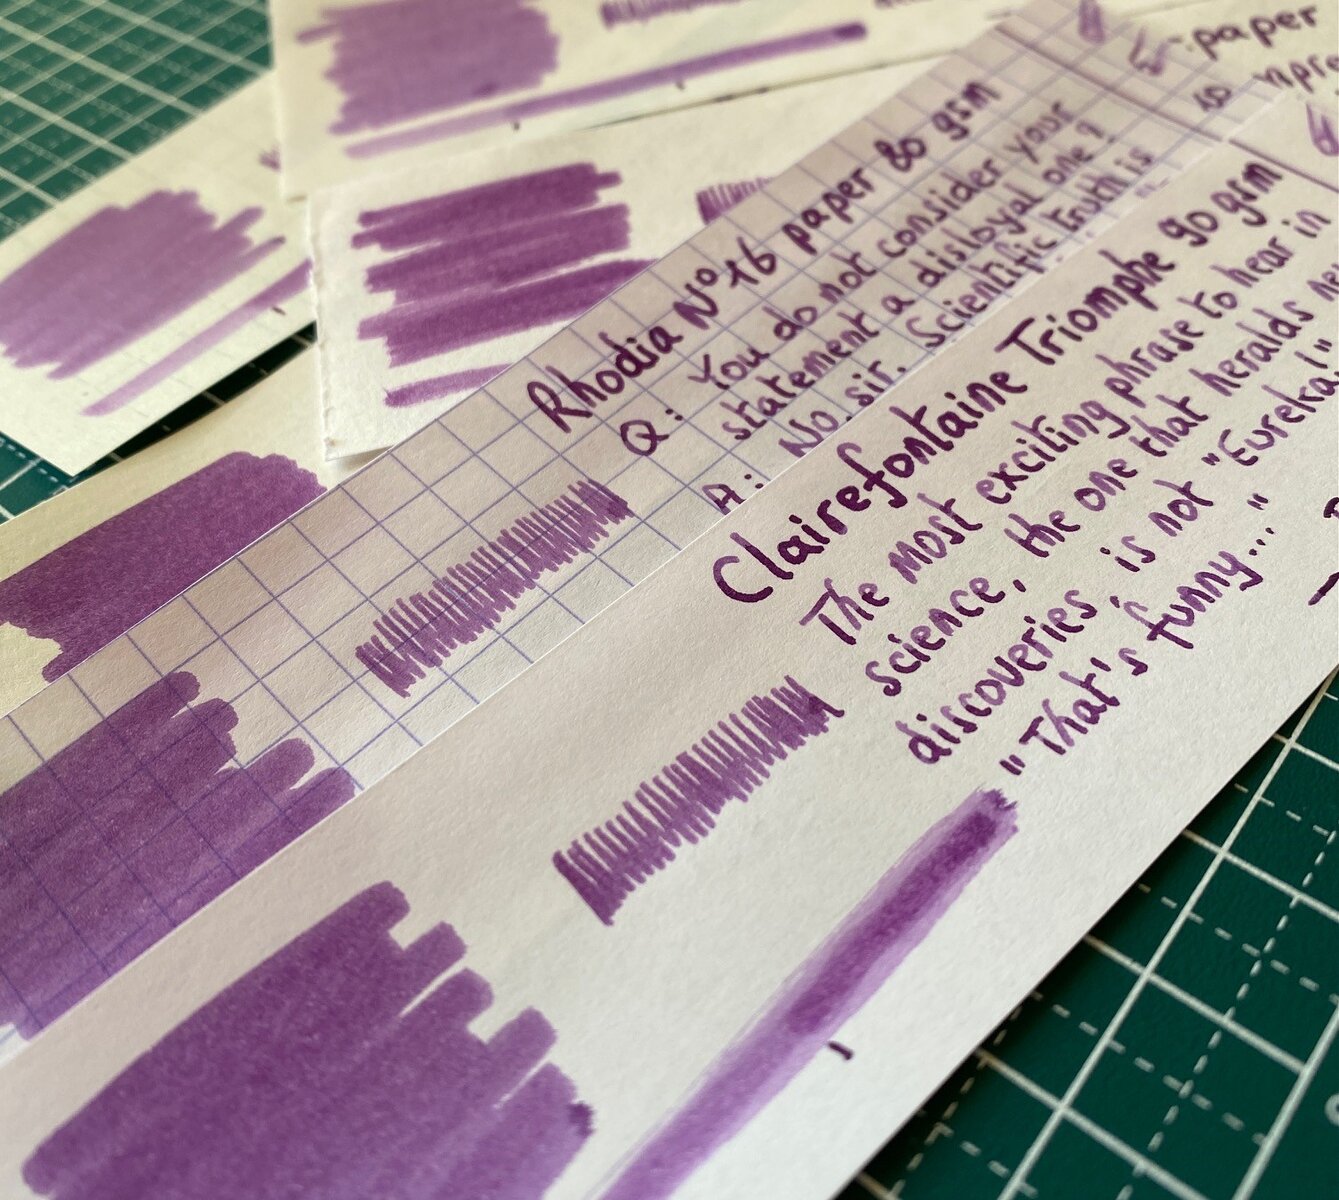 paper
Rhodia N°16 paper 80 gsm
Q: You do not consider your
statement a disloyal one?
A: No, sir. Scientific truth is
Clairefontaine Triomphe 90 gsm
The most exciting phrase to hear in
science, the one that heralds
discoveries, is not "Eureka!"
"That's funny..."